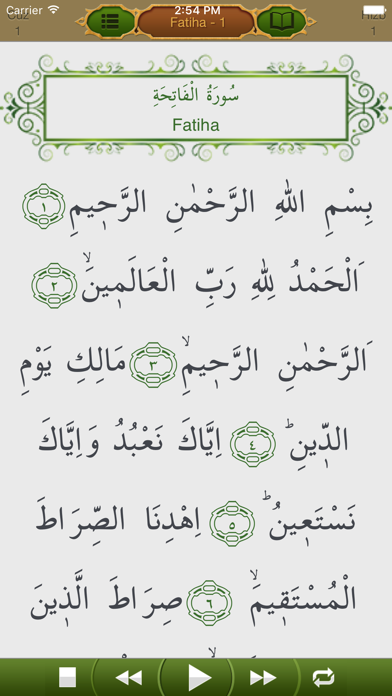 Carrier 2:54 PM
Cüz Fatiha - 1 Hizb
1 1
سُورَةُ الْفَاتِحَةِ
Fatiha
بِسْمِ اللهِ الرَّحْمٰنِ الرَّحٖيمِ ﴿١﴾
اَلْحَمْدُ لِلهِ رَبِّ الْعَالَمٖينَۙ ﴿٢﴾
اَلرَّحْمٰنِ الرَّحٖيمِۙ ﴿٣﴾ مَالِكِ يَوْمِ
الدّٖينِؕ ﴿٤﴾ اِيَّاكَ نَعْبُدُ وَاِيَّاكَ
نَسْتَعٖينُؕ ﴿٥﴾ اِهْدِنَا الصِّرَاطَ
الْمُسْتَقٖيمَۙ ﴿٦﴾ صِرَاطَ الَّذٖينَ